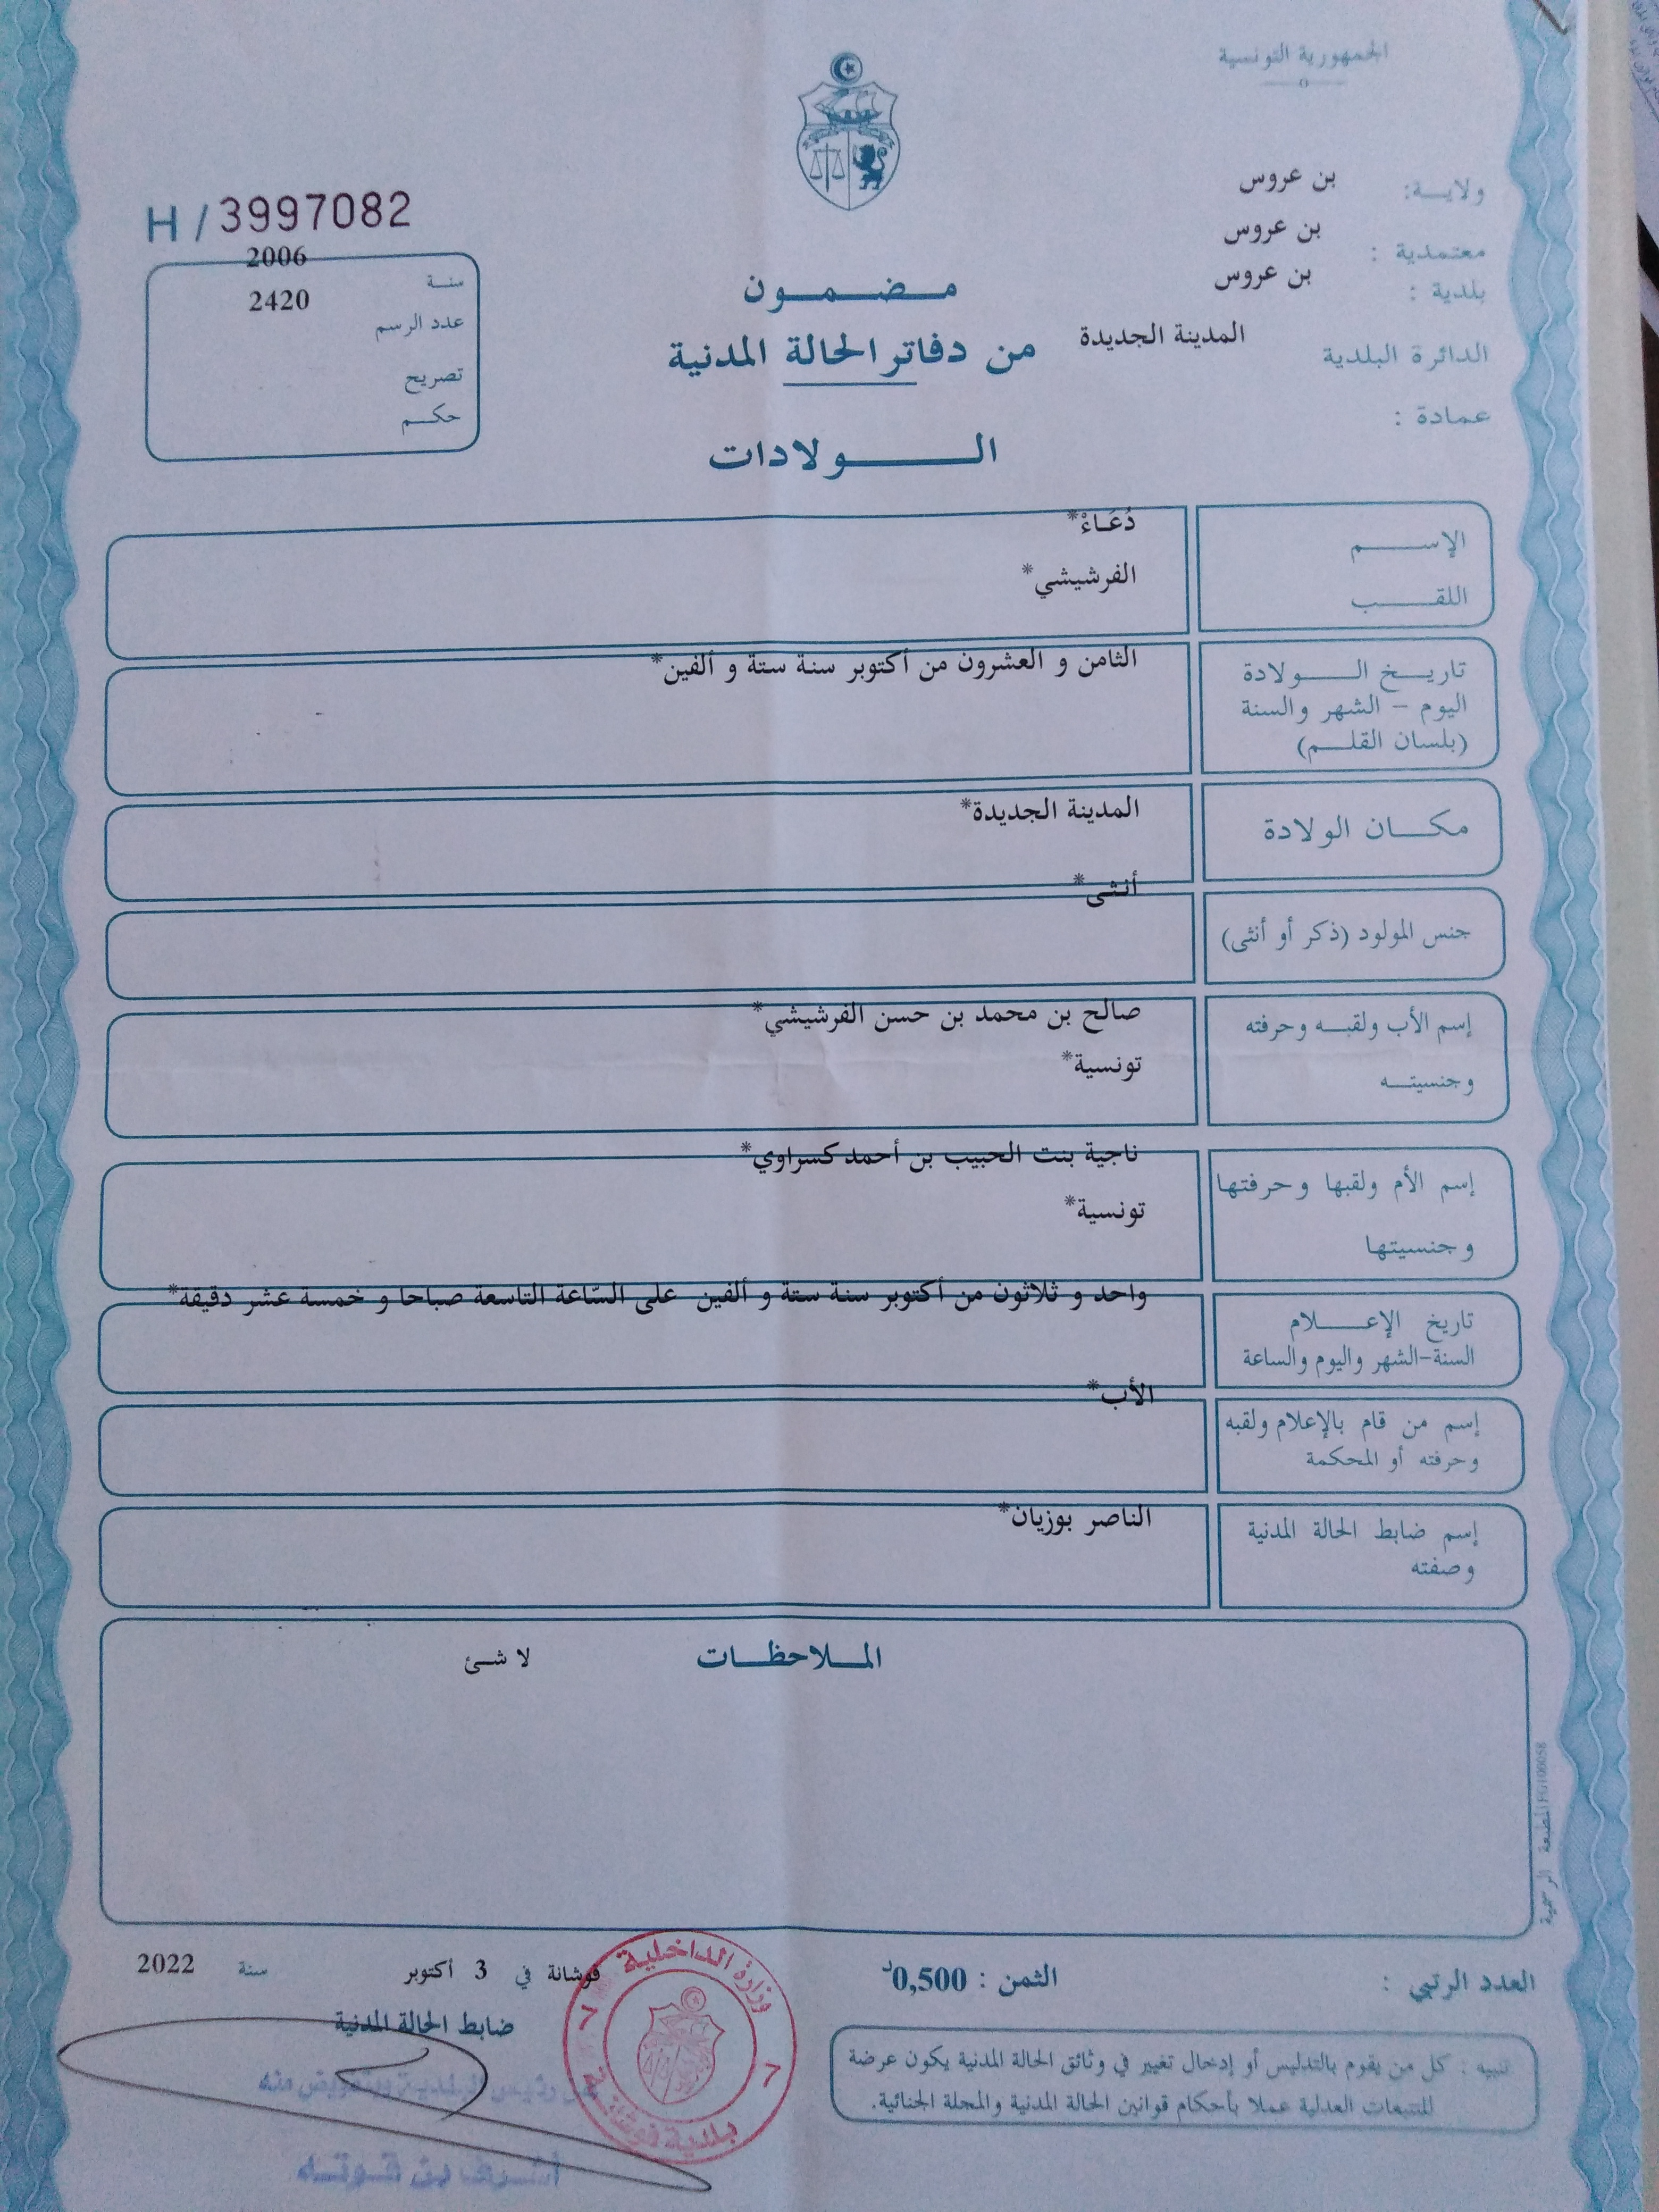 الجمهورية التونسية
ولايـــة: بن عروس
معتمدية : بن عروس
بلدية : بن عروس
الدائرة البلدية المدينة الجديدة
عمادة :
H / 3997082
سنـة 2006
عدد الرسم 2420
تصريح
حكـم
مـضـمـون
من دفاتر الحالة المدنية
الـولادات
الإسـم دُعَـاءْ*
اللقـب الفرشيشي*
تاريـخ الـولادة
اليوم - الشهر والسنة
(بلسان القلـم)
الثامن و العشرون من أكتوبر سنة ستة و ألفين*
مكـان الولادة المدينة الجديدة*
جنس المولود (ذكر أو أنثى) أنثى*
إسم الأب ولقبـه وحرفته صالح بن محمد بن حسن الفرشيشي*
وجنسيتـه تونسية*
إسم الأم ولقبها وحرفتها ناجية بنت الحبيب بن أحمد كسراوي*
وجنسيتها تونسية*
تاريخ الإعـلام واحد و ثلاثون من أكتوبر سنة ستة و ألفين على السّاعة التاسعة صباحا و خمسة عشر دقيقة*
السنة-الشهر واليوم والساعة
إسم من قام بالإعلام ولقبه الأب*
وحرفته أو المحكمة
إسم ضابط الحالة المدنية الناصر بوزيان*
وصفته
الملاحظات لا شئ
المطبعة الرسمية
العدد الرتبي :
الثمن : 0,500د
فوشانة في 3 أكتوبر سنة 2022
ضابط الحالة المدنية
وزارة الداخلية
بلدية فوشانة
7
7
عن رئيس البلدية وبتفويض منه
تنبيه : كل من يقوم بالتدليس أو إدخال تغيير في وثائق الحالة المدنية يكون عرضة
للتتبعات العدلية عملا بأحكام قوانين الحالة المدنية والمجلة الجنائية.